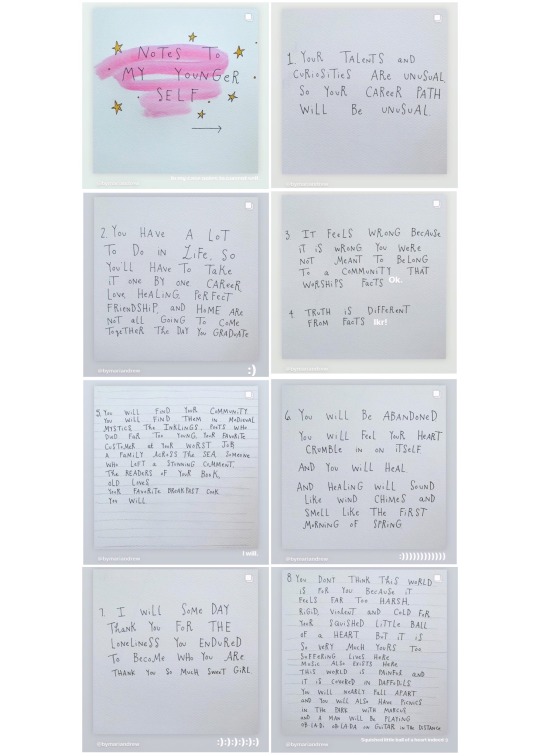 NOTES TO
MY YOUNGER
SELF
1. YOUR TALENTS AND
CURIOSITIES ARE UNUSUAL
SO YOUR CAREER PATH
WILL BE UNUSUAL.
2. YOU HAVE A LOT
TO DO IN LIFE, SO
YOU'LL HAVE TO TAKE
IT ONE BY ONE CAREER
LOVE HEALING PERFECT
FRIENDSHIP, AND HOME ARE
NOT ALL GOING TO COME
TOGETHER THE DAY YOU GRADUATE
:)
3. IT FEELS WRONG BECAUSE
IT IS WRONG YOU WERE
NOT MEANT TO BELONG
TO A COMMUNITY THAT
WORSHIPS FACTS Ok.
4. TRUTH IS DIFFERENT
FROM FACTS Ikr!
@bymariandrew
5. YOU WILL FIND YOUR COMMUNITY
YOU WILL FIND THEM IN MEDIEVAL
MYSTICS THE INKLINGS, POETS WHO
DIED FAR TOO YOUNG, YOUR FAVORITE
CUSTOMER AT YOUR WORST JOB
A FAMILY ACROSS THE SEA SOMEONE
WHO LEFT A STUNNING COMMENT.
THE READERS OF YOUR BOOK,
OLD LOVES
YOUR FAVORITE BREAKFAST COOK
YOU WILL
I will.
@bymariandrew
6. YOU WILL BE ABANDONED
YOU WILL FEEL YOUR HEART
CRUMBLE IN ON ITSELF
AND YOU WILL HEAL
AND HEALING WILL SOUND
LIKE WIND CHIMES AND
SMELL LIKE THE FIRST
MORNING OF SPRING
@bymariandrew
7. I WILL SOME DAY
THANK YOU FOR THE
LONELINESS YOU ENDURED
TO BECOME WHO YOU ARE
THANK YOU SO MUCH SWEET GIRL
@bymariandrew
:):):):):):)
8. YOU DONT THINK THIS WORLD
IS FOR YOU BECAUSE IT
FEELS FAR TOO HARSH,
RIGID, VIOLENT AND COLD FOR
YOUR SQUISHED LITTLE BALL
OF A HEART BUT IT IS
SO VERY MUCH YOURS TOO
SUFFERING LIVES HERE
MUSIC ALSO EXISTS HERE
THIS WORLD IS PAINFUL AND
IT IS COVERED IN DAFFODILS
YOU WILL NEARLY FALL APART
AND YOU WILL ALSO HAVE PICNICS
IN THE PARK WITH MARCUS
AND A MAN WILL BE PLAYING
OB-LA-DI OB-LA-DA ON GUITAR IN THE DISTANCE
@bymariandrew